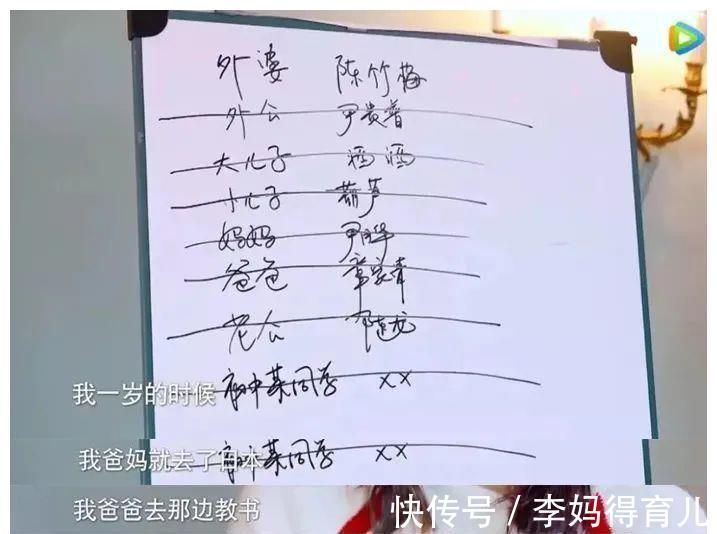 外婆 陈竹梅
外公 尹贵普
大儿子 涵涵
小儿子 葫芦
妈妈 尹
爸爸 章家
老公 陈龙
初中某同学 xx
我一岁的时候
初中某同学 xx
我爸妈就去了日本
我爸爸去那边教书
快传号 / 李妈得育儿